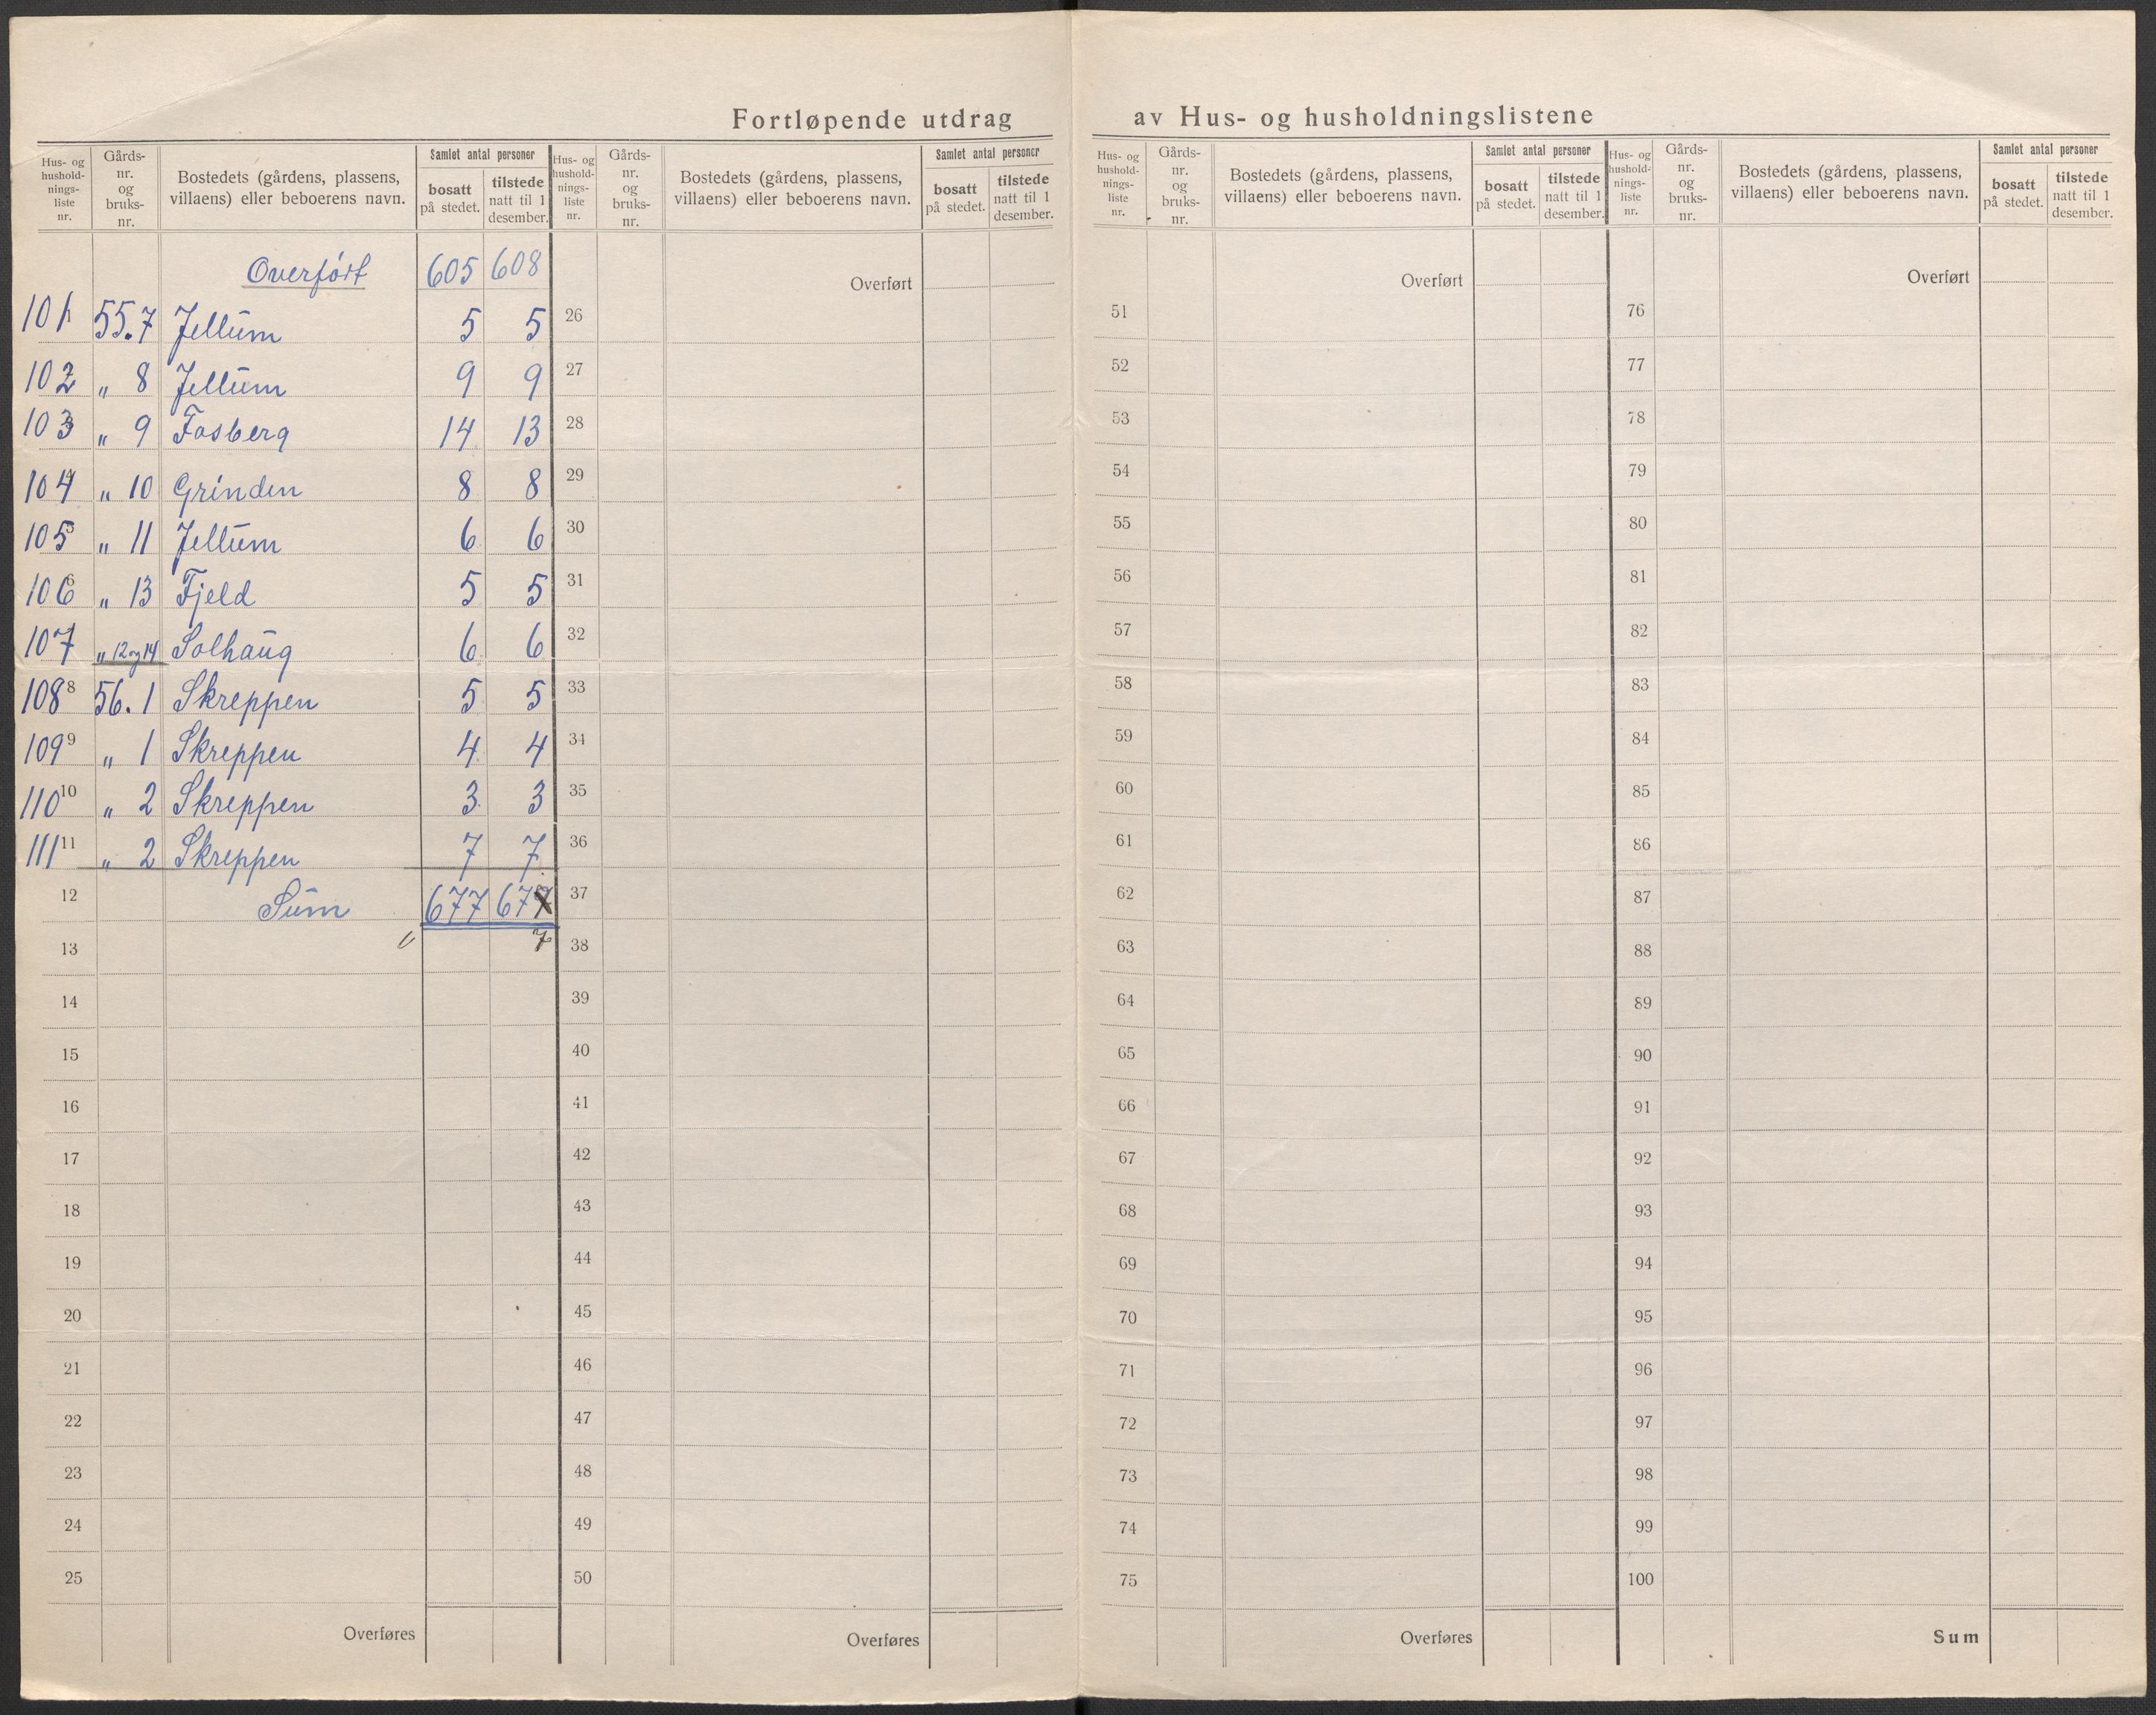 Fortløpende utdrag av Hus- og husholdningslistene
Hus- og hushold-nings-liste nr. Gårds-nr. og bruks-nr. Bostedets (gårdens, plassens, villaens) eller beboerens navn. Samlet antal personer bosatt på stedet. tilstede natt til 1 desember.
Overfört 605 608
101 55.7 Jellum 5 5
102 „ 8 Jellum 9 9
103 „ 9 Fosberg 14 13
104 „ 10 Grinden 8 8
105 „ 11 Jellum 6 6
106 „ 13 Fjeld 5 5
107 „ 12 og 14 Solhaug 6 6
108 8 56.1 Skreppen 5 5
109 9 „ 1 Skreppen 4 4
110 10 „ 2 Skreppen 3 3
111 11 „ 2 Skreppen 7 7
12 Sum 677 67
13 7
14
15
16
17
18
19
20
21
22
23
24
25
Overføres
Hus- og hushold-nings-liste nr. Gårds-nr. og bruks-nr. Bostedets (gårdens, plassens, villaens) eller beboerens navn. Samlet antal personer bosatt på stedet. tilstede natt til 1 desember.
Overført
26
27
28
29
30
31
32
33
34
35
36
37
38
39
40
41
42
43
44
45
46
47
48
49
50
Overføres
Hus- og hushold-nings-liste nr. Gårds-nr. og bruks-nr. Bostedets (gårdens, plassens, villaens) eller beboerens navn. Samlet antal personer bosatt på stedet. tilstede natt til 1 desember.
Overført
51
52
53
54
55
56
57
58
59
60
61
62
63
64
65
66
67
68
69
70
71
72
73
74
75
Overføres
Hus- og hushold-nings-liste nr. Gårds-nr. og bruks-nr. Bostedets (gårdens, plassens, villaens) eller beboerens navn. Samlet antal personer bosatt på stedet. tilstede natt til 1 desember.
Overført
76
77
78
79
80
81
82
83
84
85
86
87
88
89
90
91
92
93
94
95
96
97
98
99
100
Sum